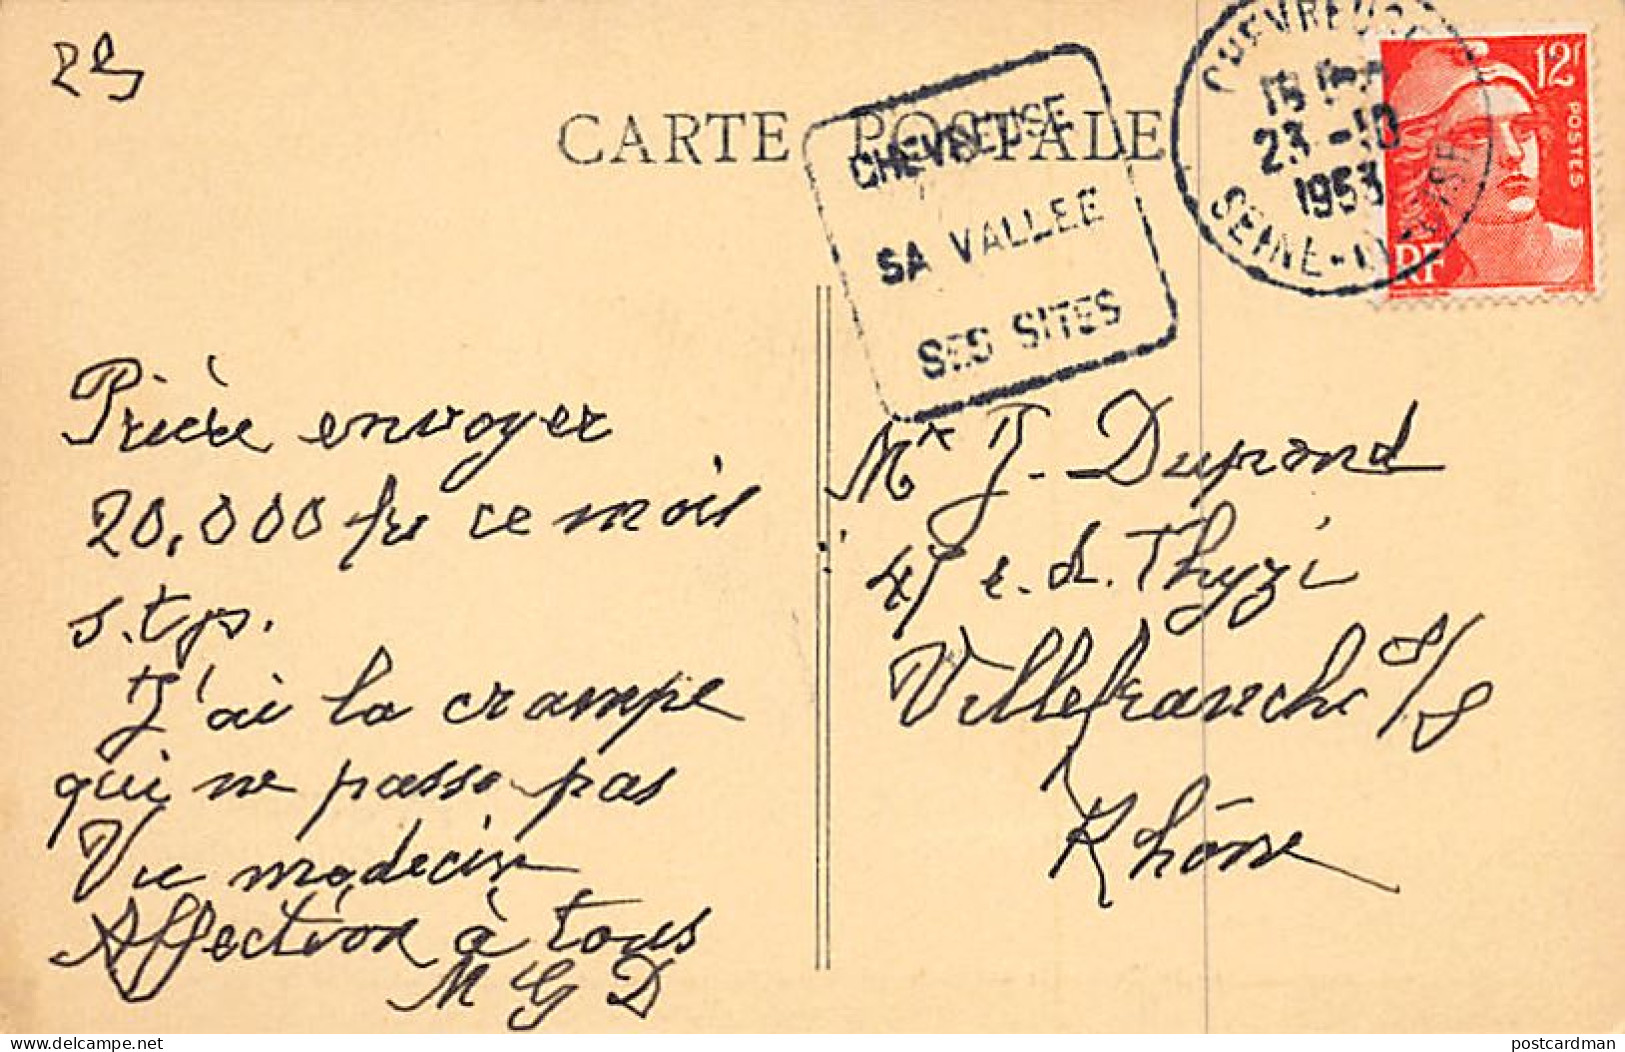 29
CARTE POSTALE
CHEVREUSE
SA VALLEE
SES SITES
CHEVREUSE
23 -10
1953
SEINE-ET-OISE
12f
POSTES
RF
Prière envoyer
20,000 frs ce mois
s.t.p.
J'ai la crampe
qui ne passe pas
Vu médecin
Affection à tous
M G D
Mr J. Durand
r. d. Thyzi
Villefranche s/s
Rhône
delcampe.net
postcardman